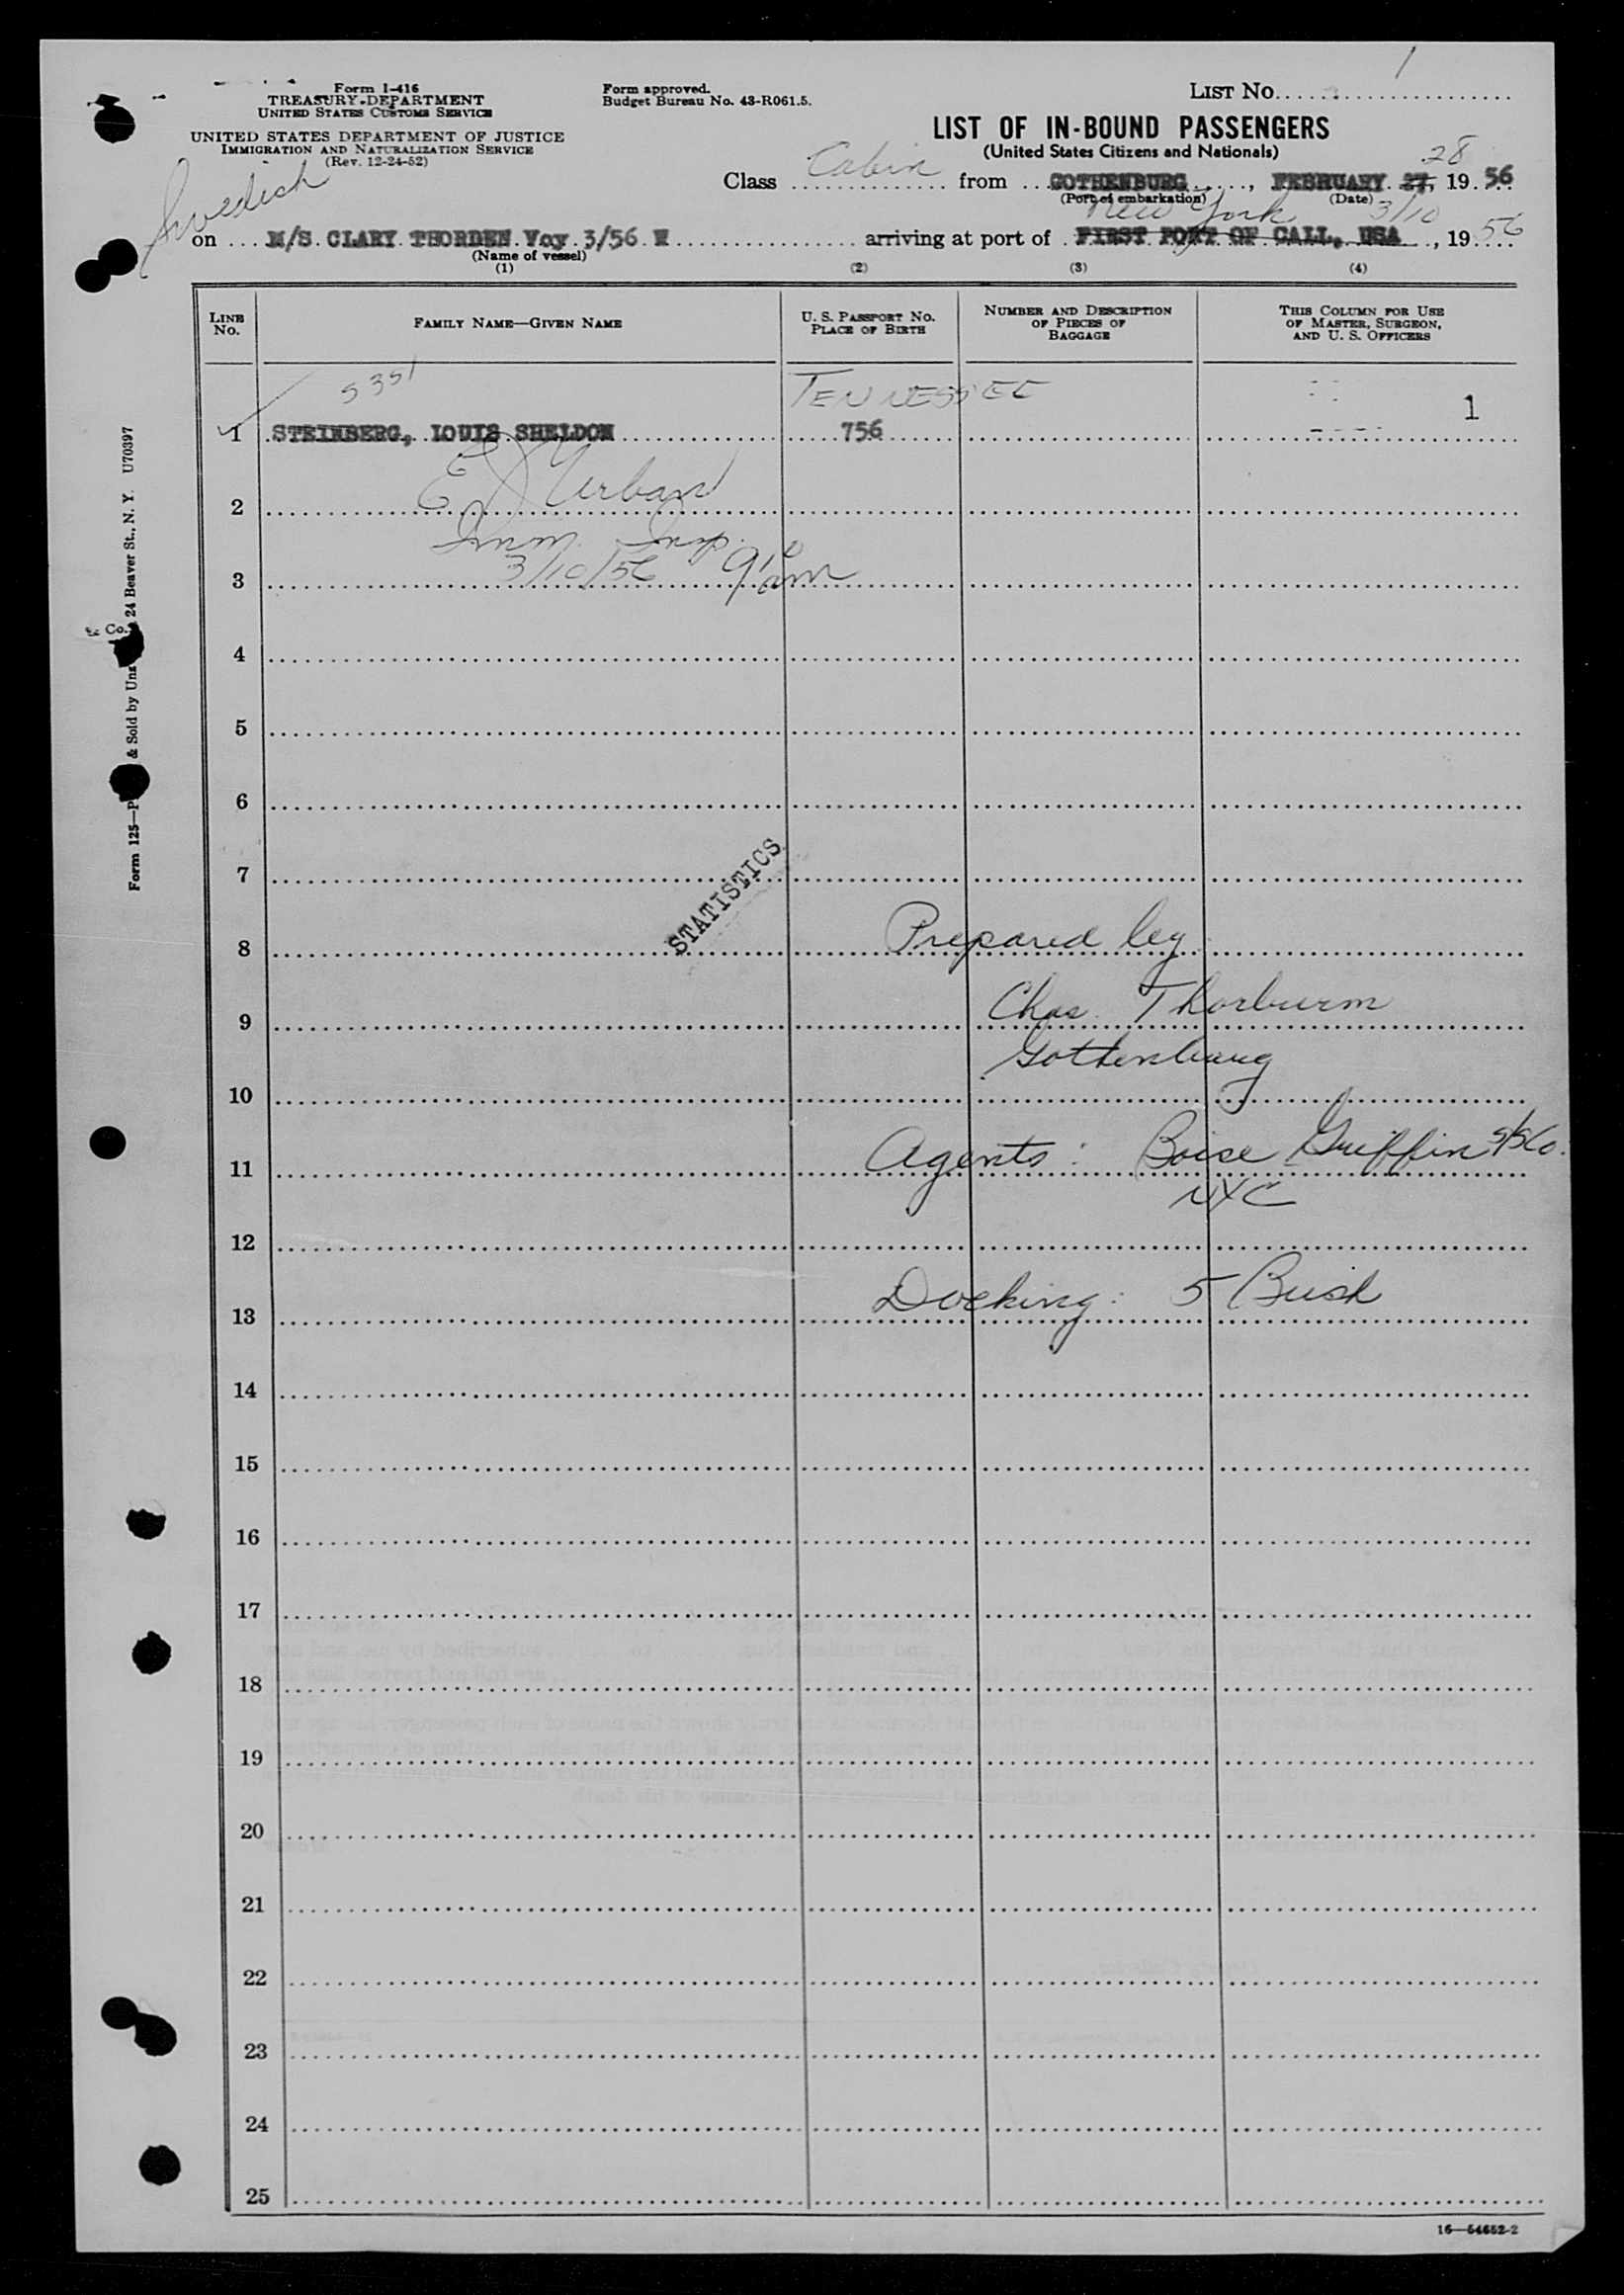 1
Form I-416
TREASURY DEPARTMENT
UNITED STATES CUSTOMS SERVICE
UNITED STATES DEPARTMENT OF JUSTICE
IMMIGRATION AND NATURALIZATION SERVICE
(Rev. 12-24-52)
Form approved.
Budget Bureau No. 43-R061.5.
LIST NO.
LIST OF IN-BOUND PASSENGERS
(United States Citizens and Nationals)
Swedish
Class Cabin from GOTHENBURG, FEBRUARY 27, 28 1956
(Port of embarkation) (Date)
New York 3/10
on M/S. CLARY THORDEN Voy 3/56 W arriving at port of FIRST PORT OF CALL, USA, 1956
(Name of vessel)
(1) (2) (3) (4)
LINE NO.
FAMILY NAME—GIVEN NAME
U. S. PASSPORT NO. PLACE OF BIRTH
NUMBER AND DESCRIPTION OF PIECES OF BAGGAGE
THIS COLUMN FOR USE OF MASTER, SURGEON, AND U. S. OFFICERS
5351 TENNESSEE
1 STEINBERG, LOUIS SHELDON 756 1
E J Urban
2
Imm. Insp.
3 3/10/56 9 am
4
5
6
7
STATISTICS
8 Prepared by
9 Chas. Thorburm
Gothenburg
10
11 Agents: Boise Griffin S/S Co.
NYC
12
13 Docking: 5 Bush
14
15
16
17
18
19
20
21
22
23
24
25
16—54652-2
Form 125—P & Sold by Unz & Co., 24 Beaver St., N. Y. U70397